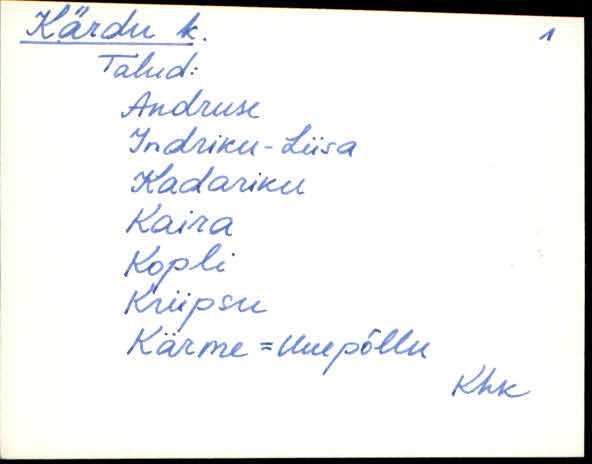 Kärdu k. 1
Talud:
Andruse
Indriku-Liisa
Kadariku
Kaira
Kopli
Kriipsu
Kärme = Uuepõllu
Khk